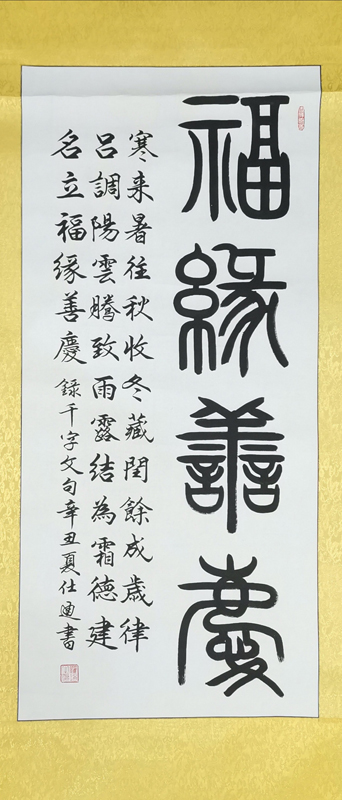 福緣善慶
寒来暑往秋收冬藏閏餘成歲律
呂調陽雲騰致雨露結為霜德建
名立福緣善慶錄千字文句辛丑夏仕迪書